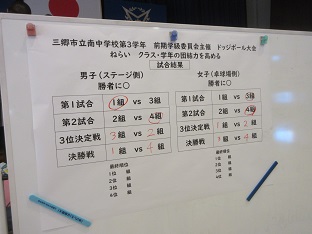 三郷市立南中学校第3学年 前期学級委員会主催 ドッジボール大会
ねらい クラス・学年の団結力を高める
試合結果
男子（ステージ側） 女子（卓球場側）
勝者に○ 勝者に○
第1試合 1組 vs 3組 第1試合 1組 vs 3組
第2試合 2組 vs 4組 第2試合 2組 vs 4組
3位決定戦 3組 vs 2組 3位決定戦 1組 vs 2組
決勝戦 1組 vs 4組 決勝戦 3組 vs 4組
最終順位 最終順位
1位 組 1位 組
2位 組 2位 組
3位 組 3位 組
4位 組 4位 組